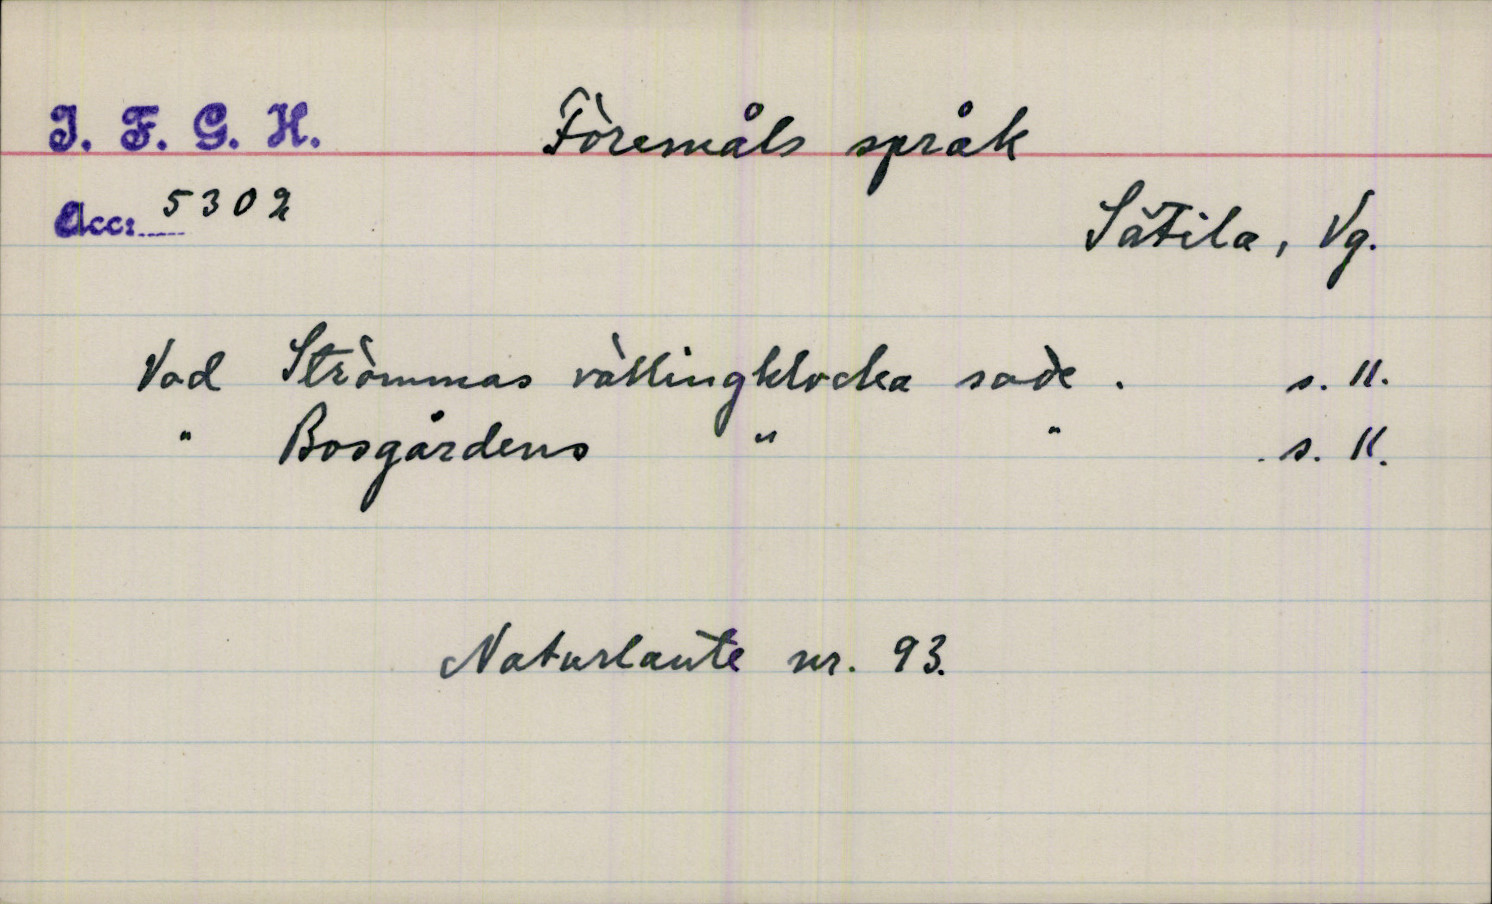 I. F. G. H. Föremåls språk
Acc: 5302
Sätila, Vg.
Vad Strömmas vällingklocka sade. s. 11.
" Bosgårdens " " s. 11.
Naturlaute nr. 93.